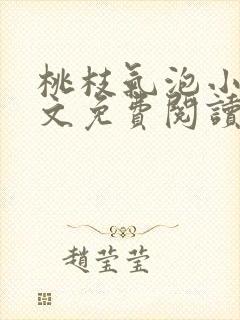 桃枝氣泡小
文免費閱讀
趙瑩瑩